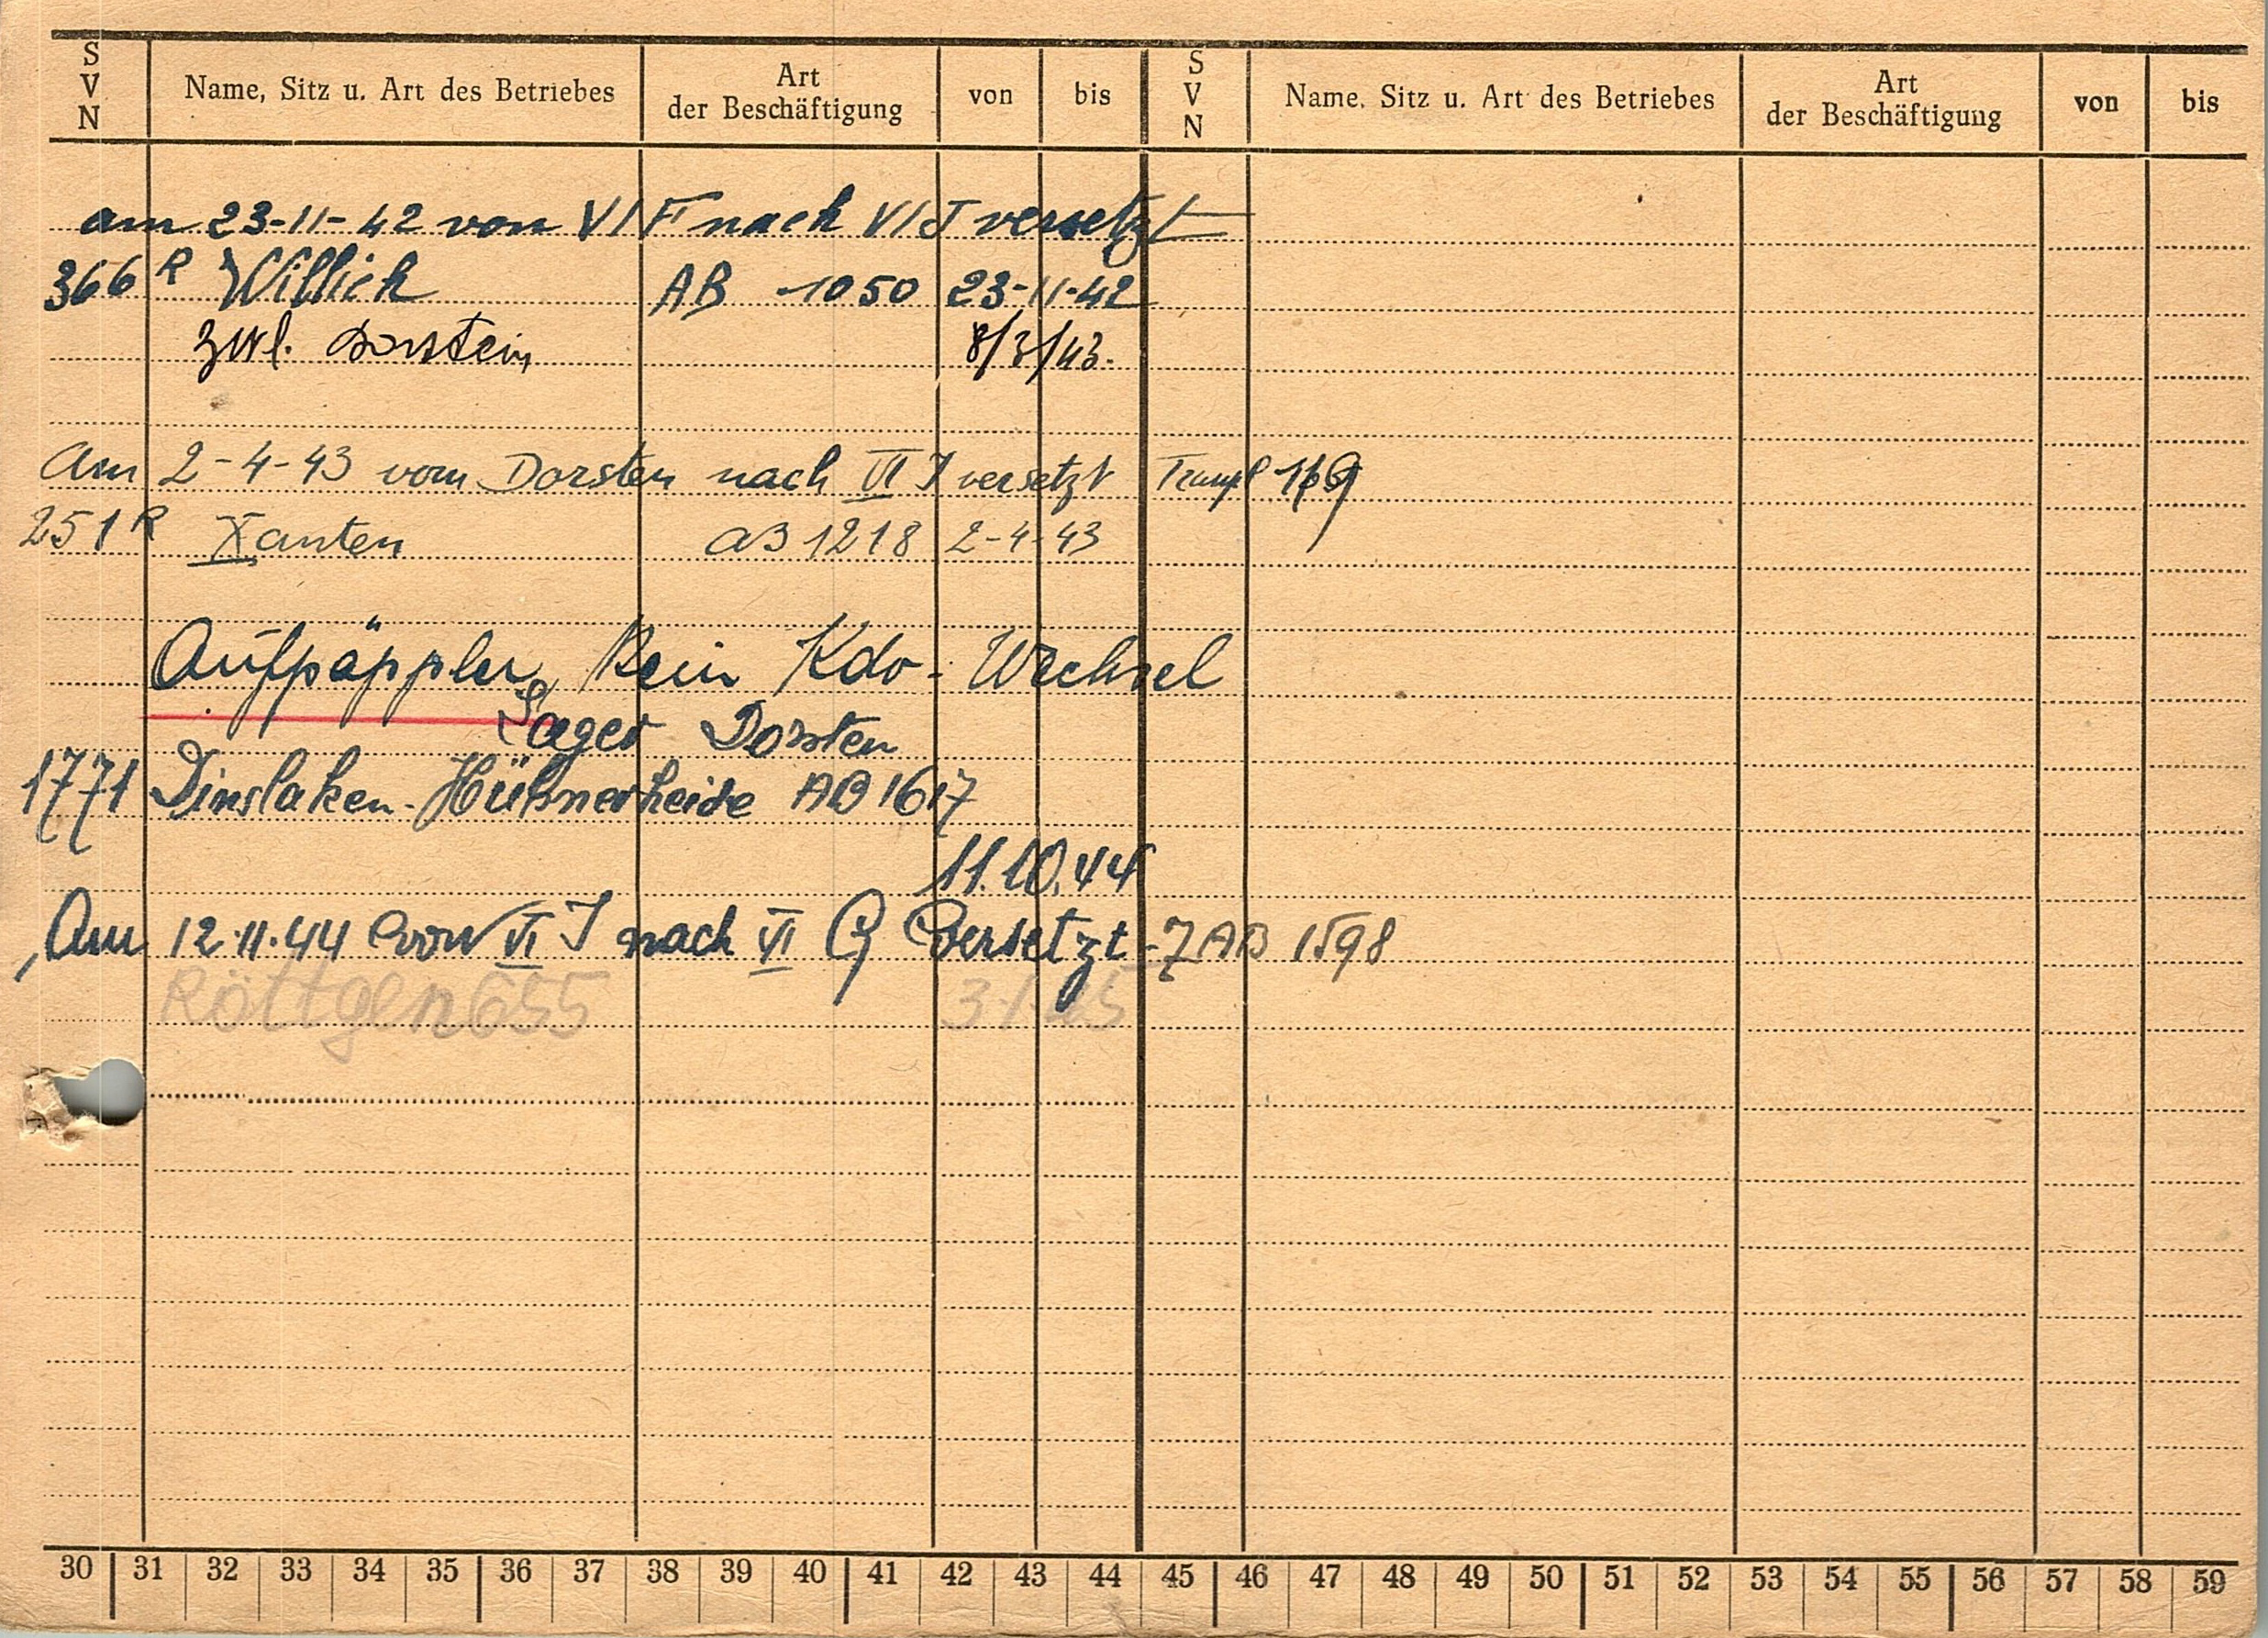 S V N Name, Sitz u. Art des Betriebes Art der Beschäftigung von bis S V N Name, Sitz u. Art des Betriebes Art der Beschäftigung von bis
am 23-11-42 von VI F nach VI J versetzt
366 R Willich AB 1050 23-11-42
zurl. Dorsten 8/3/43.
Am 2-4-43 vom Dorsten nach VI J versetzt 169
251 R Xanten AB 1218 2-4-43
Aufpäppler, Kein Kdo.-Wechsel
Lager Dorsten
1771 Dinslaken-Hühnerheide AB 1617
11.10.44
Am 12.11.44 von VI J nach VI G versetzt - ZAB 1598
Röttgen 655 3-1-45
30 31 32 33 34 35 36 37 38 39 40 41 42 43 44 45 46 47 48 49 50 51 52 53 54 55 56 57 58 59